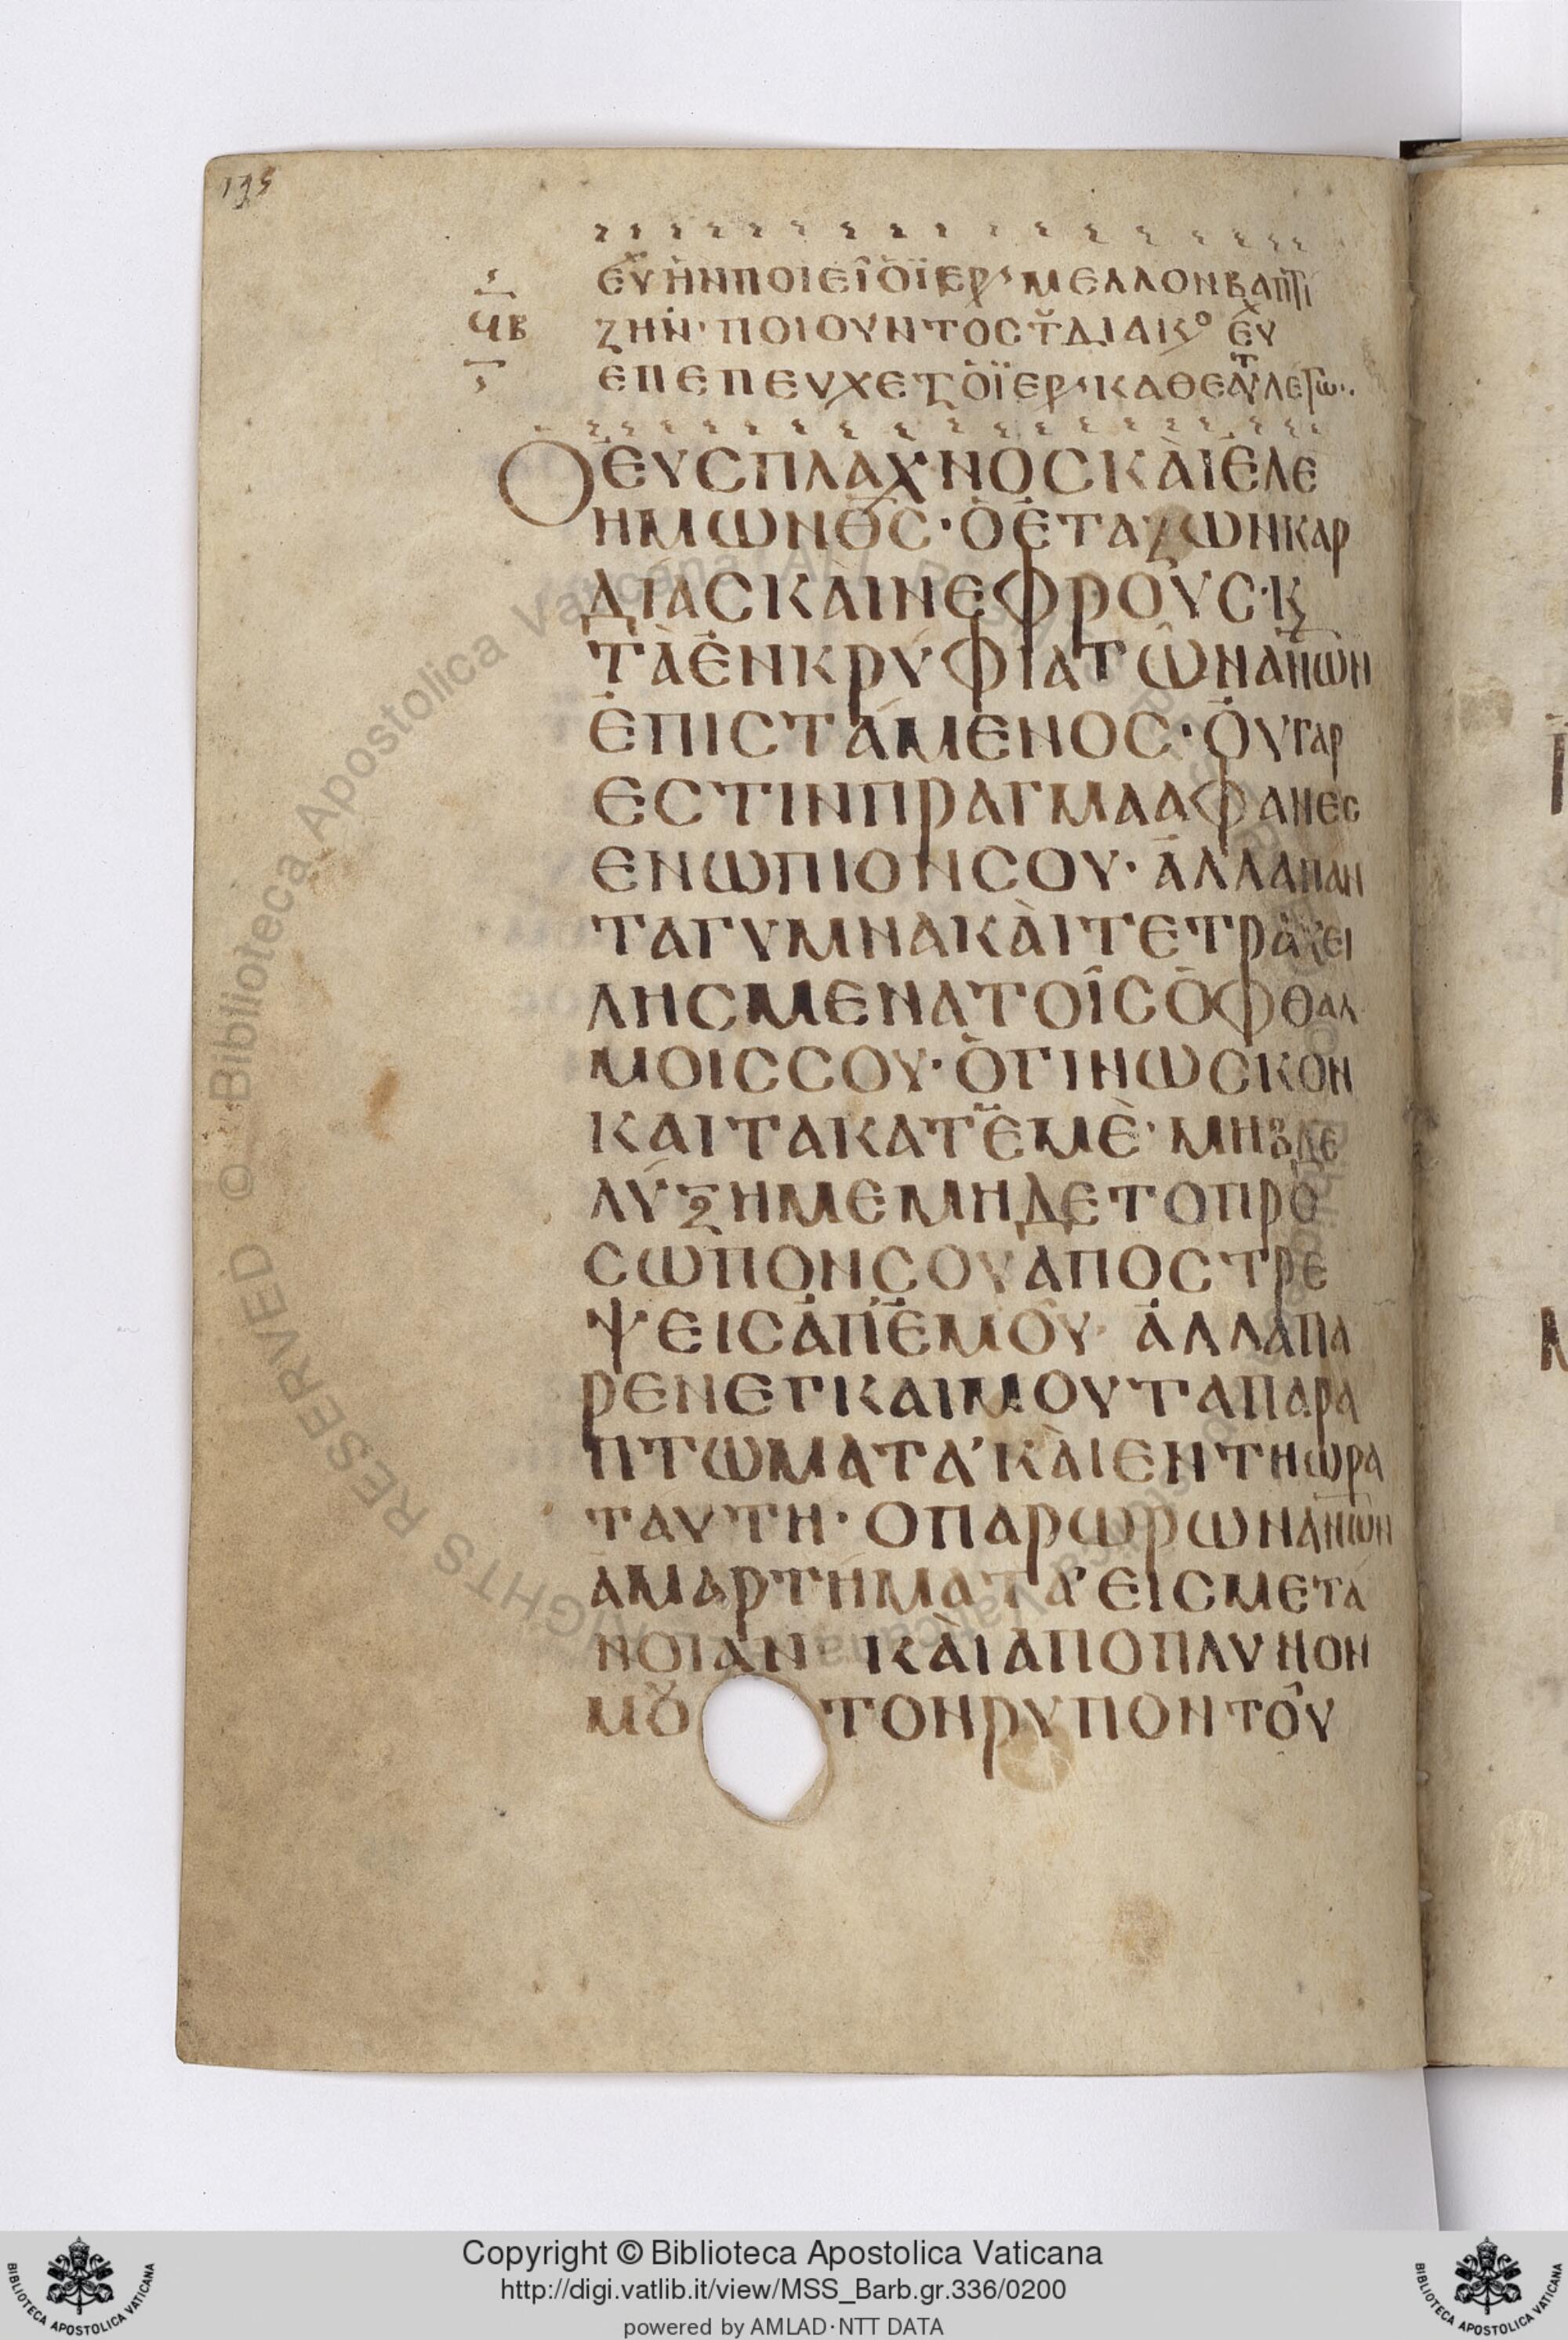 195
ΕΥΧΗΝΠΟΙΕῖὉΪΕΡ· ΜΕΛΛΟΝΒΑΠΤΙ
ϤΒ ΖΗΝ· ΠΟΙΟΥΝΤΟΣΤΔΙΑΚΟ ΕΥΧ
ΕΠΕΠΕΥΧΕΤὉΪΕΡ· ΚΑΘΕΑΥΤΛΕΓΩ·
ΟΕΥϹΠΛΑΧΝΟϹΚᾺΙΕΛΕ
ΗΜΩΝΘϹ· ὉΕΤΑΖΩΝΚΑΡ
ΔΙΑϹΚᾺΙΝΕΦΡΟΥϹ· Κ
ΤᾺΕΝΚΡΥΦΙΑΤΩΝΑΝΩΝ
ΕΠΙϹΤΑΜΕΝΟϹ· ΟΥΓΑΡ
ΕϹΤΙΝΠΡΑΓΜΑΑΦΑΝΕϹ
ΕΝΩΠΙΟΝϹΟΥ· ΑΛΛΑΠΑΝ
ΤΑΓΥΜΝΑΚᾺΙΤΕΤΡΑΧΕΙ
ΛΗϹΜΕΝΑΤΟῖϹΟΦΘΑΛ
ΜΟΙϹϹΟΥ· ὉΓΙΝΩϹΚΟΝ
ΚΑΙΤΑΚΑΤΕΜῈ· ΜΗΒΔΕ
ΛΥΞΗΜΕΜΗΔΕΤΟΠΡΟ
ϹΩΠΟΝϹΟΥΑΠΟϹΤΡΕ
ΨΕΙϹΑΠΕΜΟΥ· ΑΛΛΑΠΑ
ΡΕΝΕΓΚΑΙΜΟΥΤΑΠΑΡΑ
ΠΤΩΜΑΤΑ’ΚᾺΙΕΝΤΗΩΡΑ
ΤΑΥΤΗ· ΟΠΑΡΩΡΩΝΑΝΩΝ
ΑΜΑΡΤΗΜΑΤΑ’ΕΙϹΜΕΤΑ
ΝΟΙΑΝ· ΚᾺΙΑΠΟΠΛΥΝΟΝ
ΜȢ ΤΟΝΡΥΠΟΝΤΟΥ
© Biblioteca Apostolica Vaticana
RIGHTS RESERVED
Copyright © Biblioteca Apostolica Vaticana
http://digi.vatlib.it/view/MSS_Barb.gr.336/0200
powered by AMLAD·NTT DATA
BIBLIOTECA APOSTOLICA VATICANA
BIBLIOTECA APOSTOLICA VATICANA